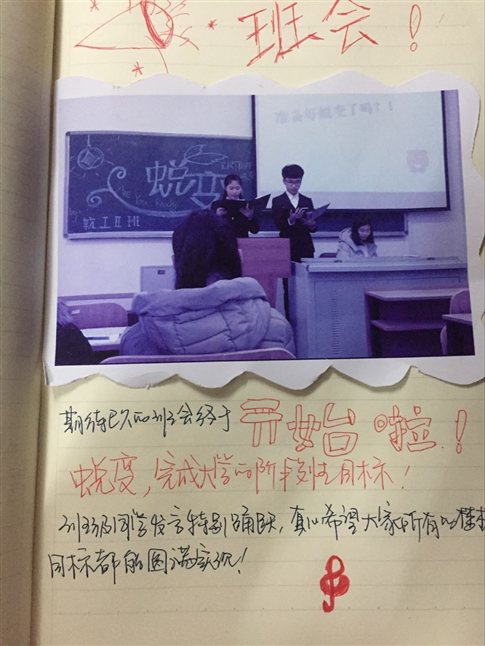 班会！
准备好蜕变了吗？！
蜕变
Are You Ready
软工II班
期待已久的班会终于开始啦！
蜕变，完成大学的阶段性目标！
班级同学发言特别踊跃，真心希望大家所有的
目标都能圆满实现！